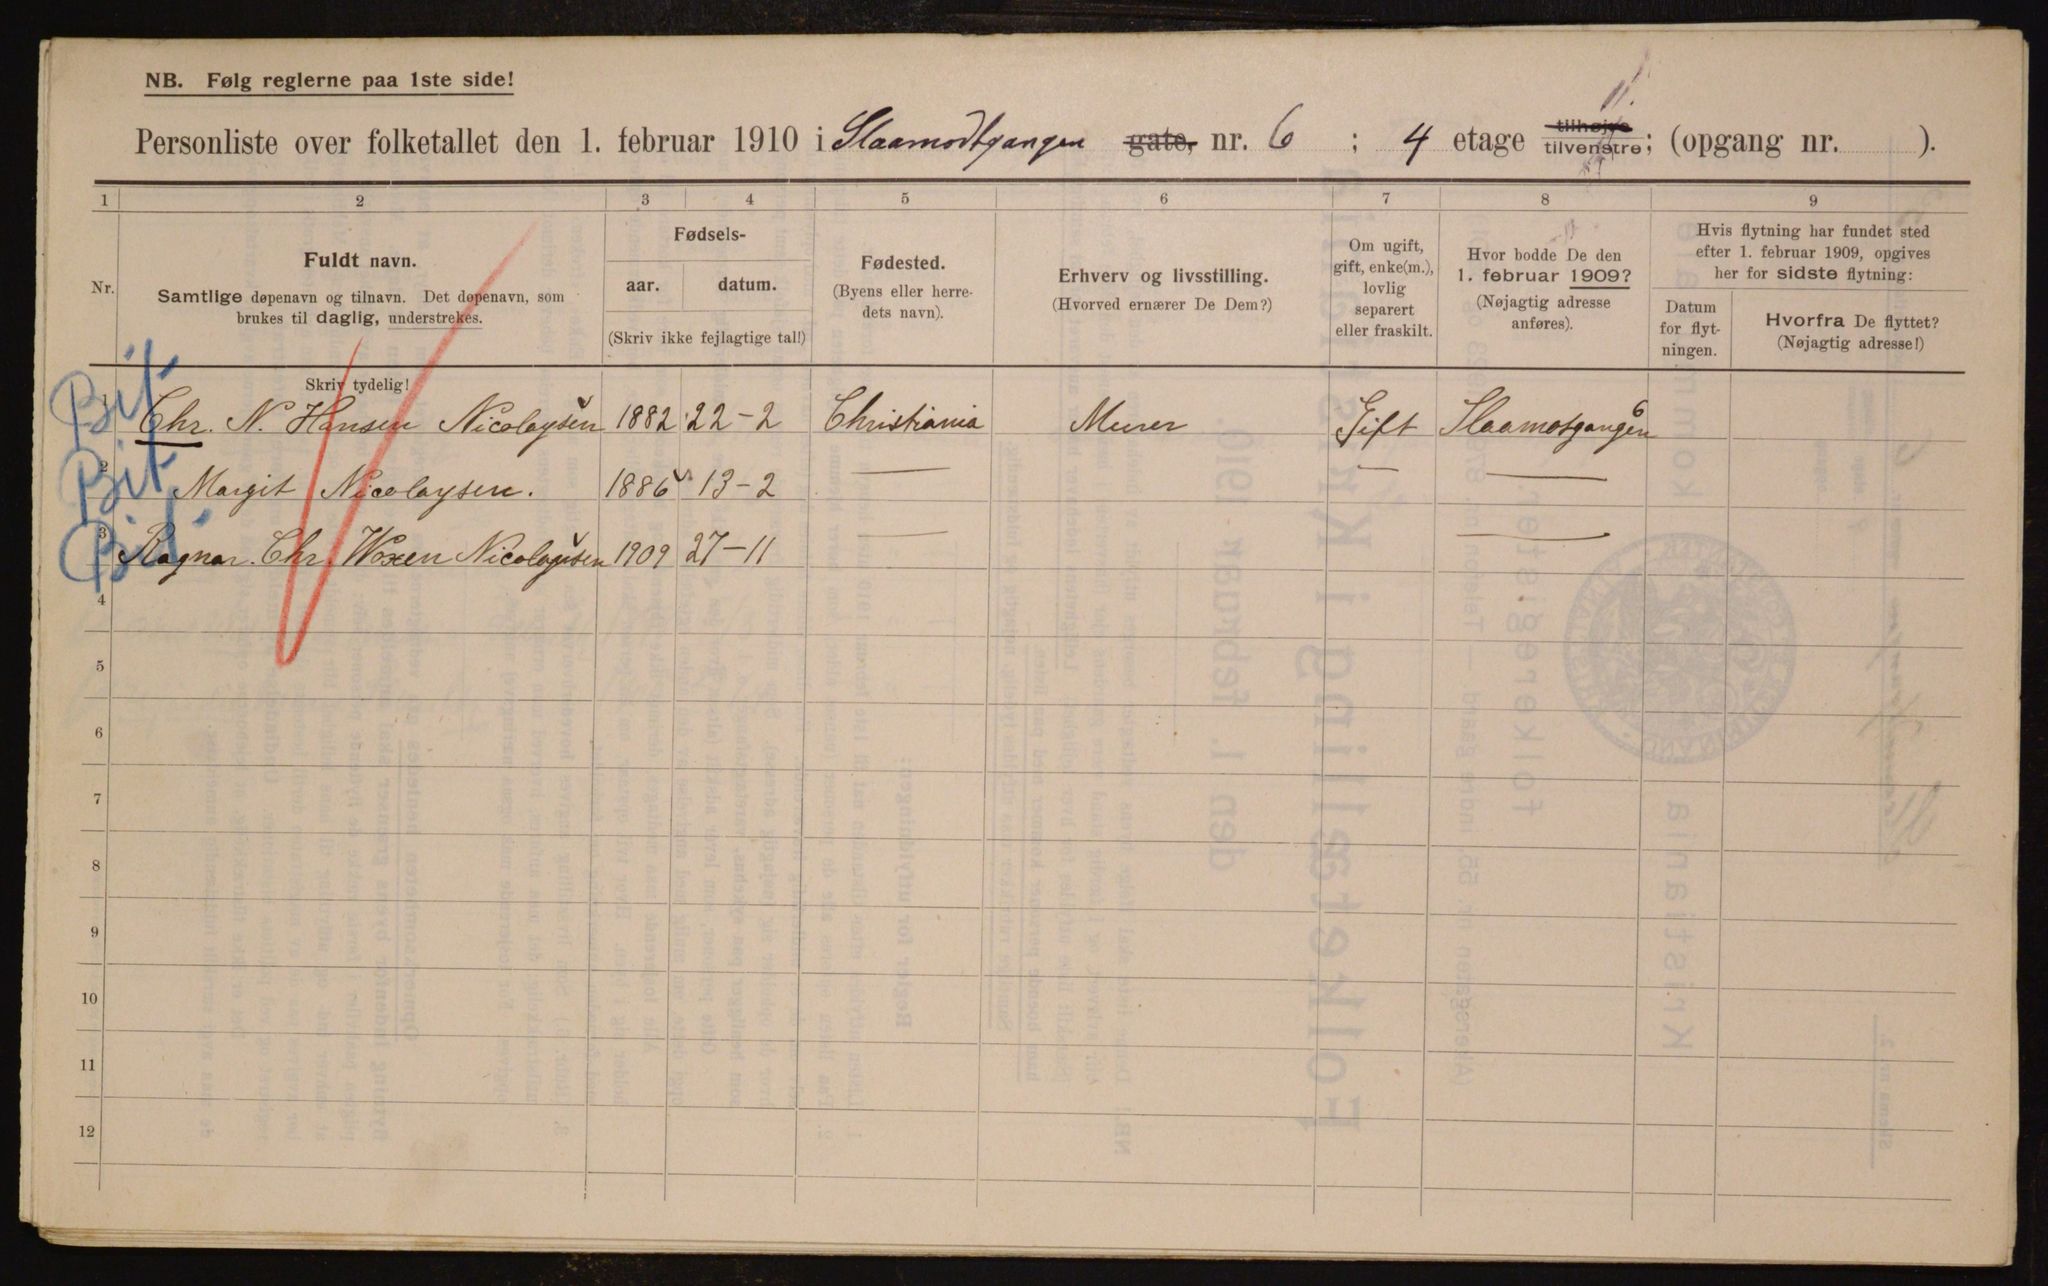 NB. Følg reglerne paa 1ste side!
Personliste over folketallet den 1. februar 1910 i Slaamodtgangen gate, nr. 6 ; 4 etage tilhøjre tilvenstre; (opgang nr. ).
1 2 3 4 5 6 7 8 9
Nr.
Fuldt navn.
Samtlige døpenavn og tilnavn. Det døpenavn, som
brukes til daglig, understrekes.
Fødsels-
aar. datum.
(Skriv ikke fejlagtige tal!)
Fødested.
(Byens eller herre-
dets navn).
Erhverv og livsstilling.
(Hvorved ernærer De Dem?)
Om ugift,
gift, enke(m.),
lovlig
separert
eller fraskilt.
Hvor bodde De den
1. februar 1909?
(Nøjagtig adresse
anføres).
Hvis flytning har fundet sted
efter 1. februar 1909, opgives
her for sidste flytning:
Datum
for flyt-
ningen.
Hvorfra De flyttet?
(Nøjagtig adresse!)
Skriv tydelig!
1 Bit Chr. N. Hansen Nicolaysen 1882 22-2 Christiania Murer Gift Slaamotgangen 6
2 Bit Margit Nicolaysen. 1886 13-2 — — —
3 Bit Ragnar. Chr. Woxen Nicolaysen 1909 27-11 — —
4
5
6
7
8
9
10
11
12